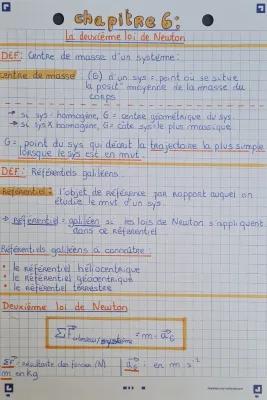 chapitre 6 :
La deuxième loi de Newton
DEF: Centre de masse d'un système:
centre de masse (G) d'un sys = point où se situe
la posit° moyenne de la masse du
corps
→ si sys = homogène, G = centre géométrique du sys.
→ si sys ≠ homogène, G = côté sys le plus massique
G = point du sys qui décrit la trajectoire la plus simple
lorsque le sys est en mvt.
DEF: Référentiels galiléens
Référentiel: l'objet de référence par rapport auquel on
étudie le mvt d'un sys.
→ Référentiel = galiléen si les lois de Newton s'appliquent
dans ce référentiel
Référentiels galiléens à connaître:
• le référentiel héliocentrique
• le référentiel géocentrique
• le référentiel terrestre
Deuxième loi de Newton
ΣF = m · a G
ΣF: résultante des forces (N)
a G : en m.s⁻²
m en kg